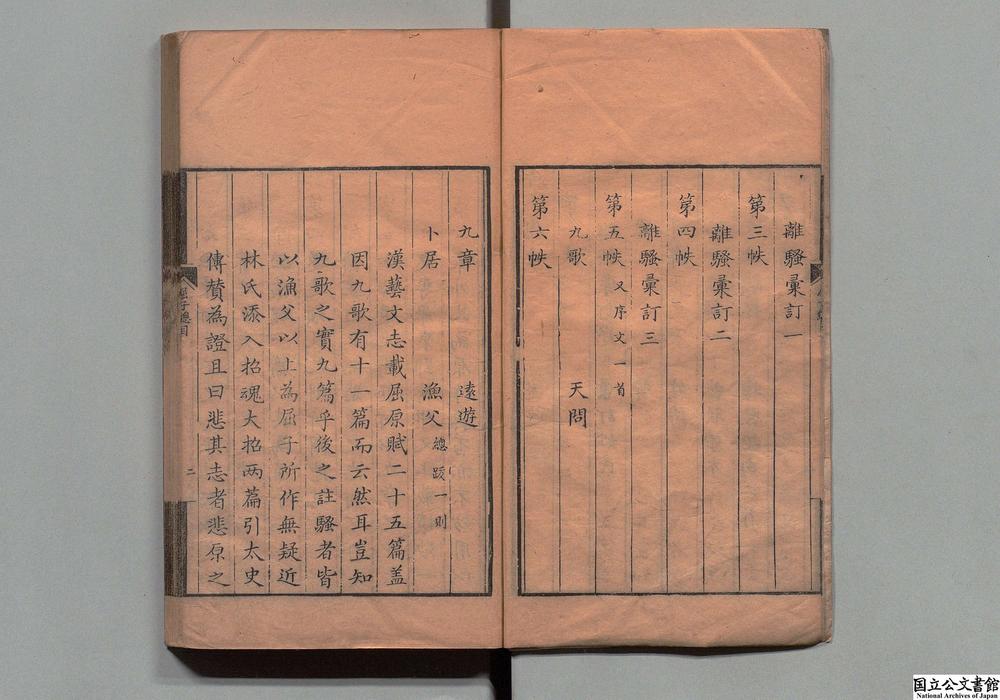 離騷彙訂一
第三帙
離騷彙訂二
第四帙
離騷彙訂三
第五帙 又序文一首
九歌 天問
第六帙
九章 遠遊
卜居 漁父 總跋一則
漢藝文志載屈原賦二十五篇蓋
因九歌有十一篇而云然耳豈知
九歌之實九篇乎後之註騷者皆
以漁父以上為屈子所作無疑近
林氏添入招魂大招两篇引太史
傳賛為證且曰悲其志者悲原之
屈子總目
二
国立公文書館
National Archives of Japan